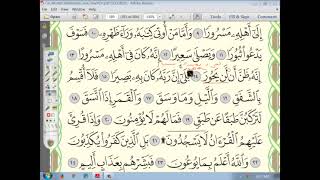 إِلَىٰٓ أَهْلِهِۦ مَسْرُورًا ٩ وَأَمَّا مَنْ أُوتِىَ كِتَٰبَهُۥ وَرَآءَ ظَهْرِهِۦ ١٠ فَسَوْفَ
يَدْعُوا۟ ثُبُورًا ١١ وَيَصْلَىٰ سَعِيرًا ١٢ إِنَّهُۥ كَانَ فِىٓ أَهْلِهِۦ مَسْرُورًا ١٣
إِنَّهُۥ ظَنَّ أَن لَّن يَحُورَ ١٤ بَلَىٰٓ إِنَّ رَبَّهُۥ كَانَ بِهِۦ بَصِيرًا ١٥ فَلَآ أُقْسِمُ
بِٱلشَّفَقِ ١٦ وَٱلَّيْلِ وَمَا وَسَقَ ١٧ وَٱلْقَمَرِ إِذَا ٱتَّسَقَ ١٨
لَتَرْكَبُنَّ طَبَقًا عَن طَبَقٍ ١٩ فَمَا لَهُمْ لَا يُؤْمِنُونَ ٢٠ وَإِذَا قُرِئَ
عَلَيْهِمُ ٱلْقُرْءَانُ لَا يَسْجُدُونَ ٢١ بَلِ ٱلَّذِينَ كَفَرُوا۟ يُكَذِّبُونَ ٢٢
وَٱللَّهُ أَعْلَمُ بِمَا يُوعُونَ ٢٣ فَبَشِّرْهُم بِعَذَابٍ أَلِيمٍ ٢٤